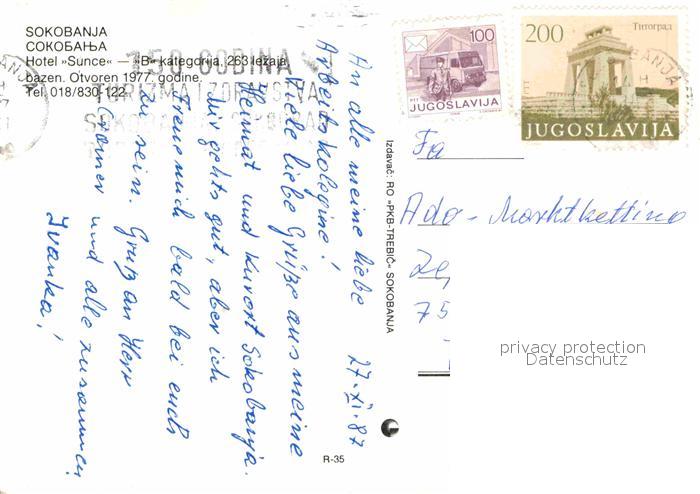 SOKOBANJA
СОКОБАЊА
Hotel »Sunce« — »B« kategorija, 263 ležaja,
bazen. Otvoren 1977. godine.
Tel. 018/830-122
150 GODINA
TURIZMA I ZDRAVSTVA
100
PTT JUGOSLAVIJA
200
Титоград
JUGOSLAVIJA
27.XI.87
An alle meine liebe
Arbeitskolegine!
Viele liebe Grüße aus meine
Heimat und Kurort Sokobanja.
Mir gehts gut, aber ich
Freue mich bald bei euch
zu sein. Gruß an Herr
und alle zusammen
Ivanka!
Izdavač: RO »PKB-TREBIČ« SOKOBANJA
R-35
Fa
Ado-Marktketting
75
privacy protection
Datenschutz